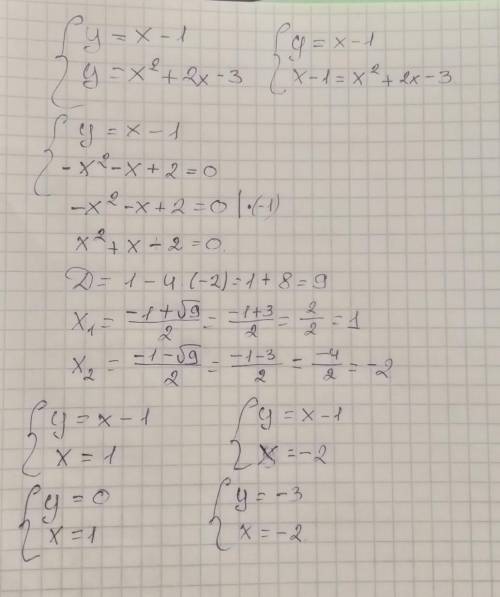 { y = x - 1    { y = x - 1
{ y = x² + 2x - 3    { x - 1 = x² + 2x - 3
{ y = x - 1
{ -x² - x + 2 = 0
-x² - x + 2 = 0 | · (-1)
x² + x - 2 = 0.
D = 1 - 4 · (-2) = 1 + 8 = 9
x₁ = (-1 + √9)/2 = (-1+3)/2 = 2/2 = 1
x₂ = (-1 - √9)/2 = (-1-3)/2 = -4/2 = -2
{ y = x - 1    { y = x - 1
{ x = 1    { x = -2
{ y = 0    { y = -3
{ x = 1    { x = -2